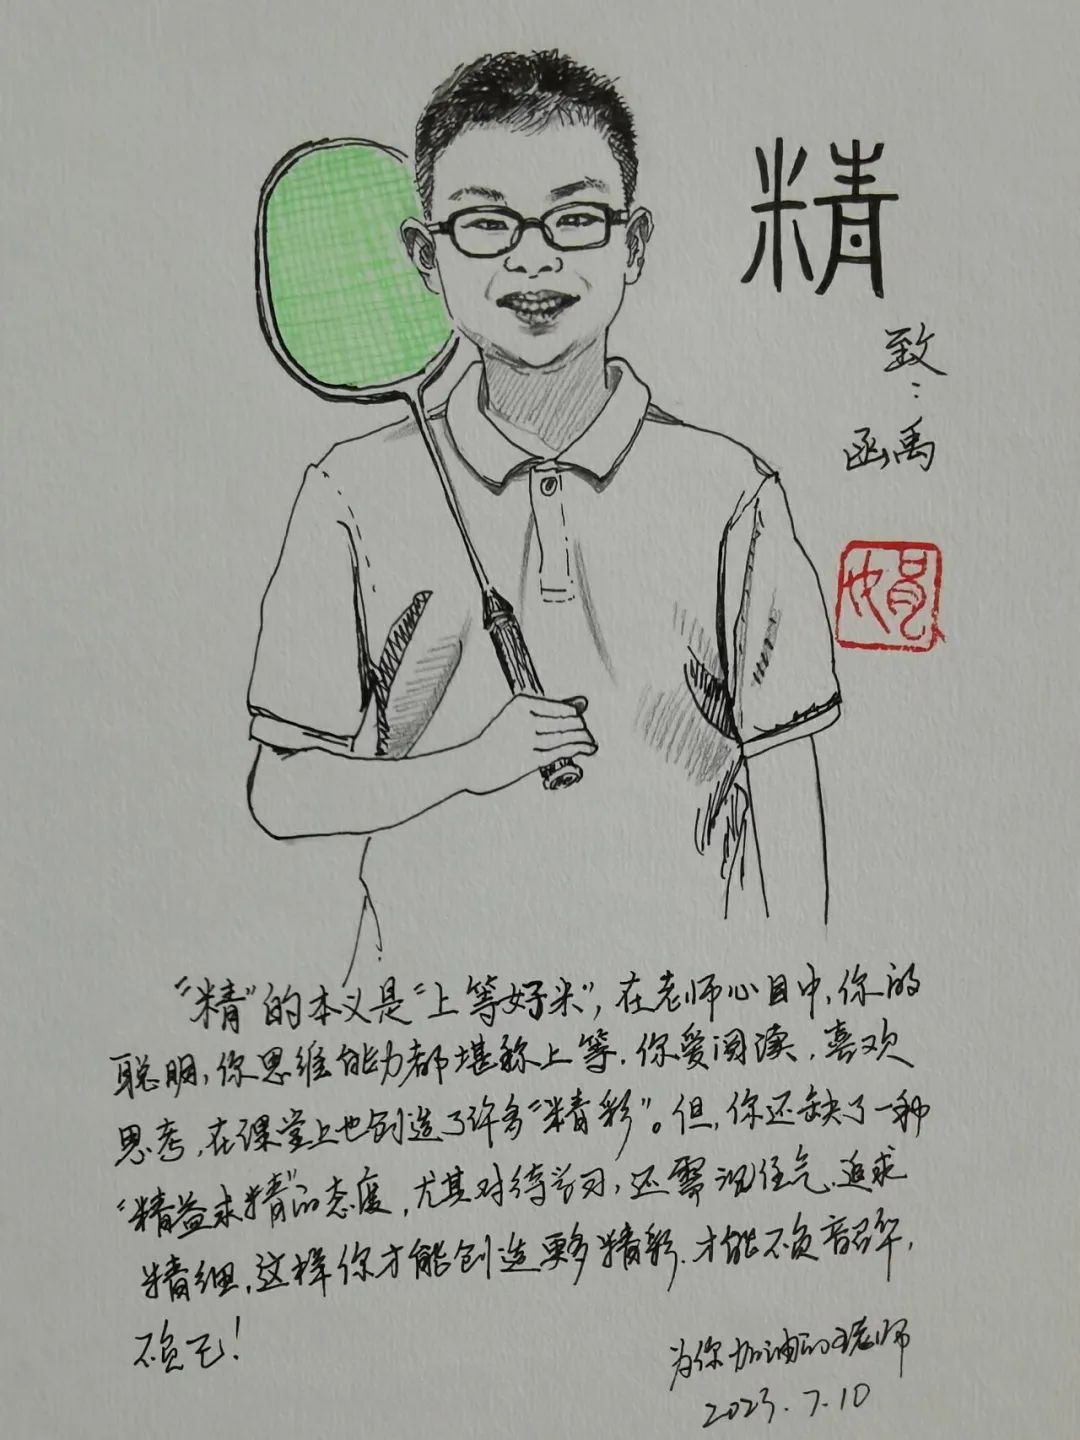 精
致：
函禹
娟
"精"的本义是"上等好米"，在老师心目中，你的
聪明，你思维能力都堪称上等。你爱阅读，喜欢
思考，在课堂上也创造了许多"精彩"。但，你还缺了一种
"精益求精"的态度，尤其对待学习，还需沉住气，追求
精细，这样你才能创造更多精彩，才能不负韶华，
不负己！
为你加油的王老师
2023.7.10